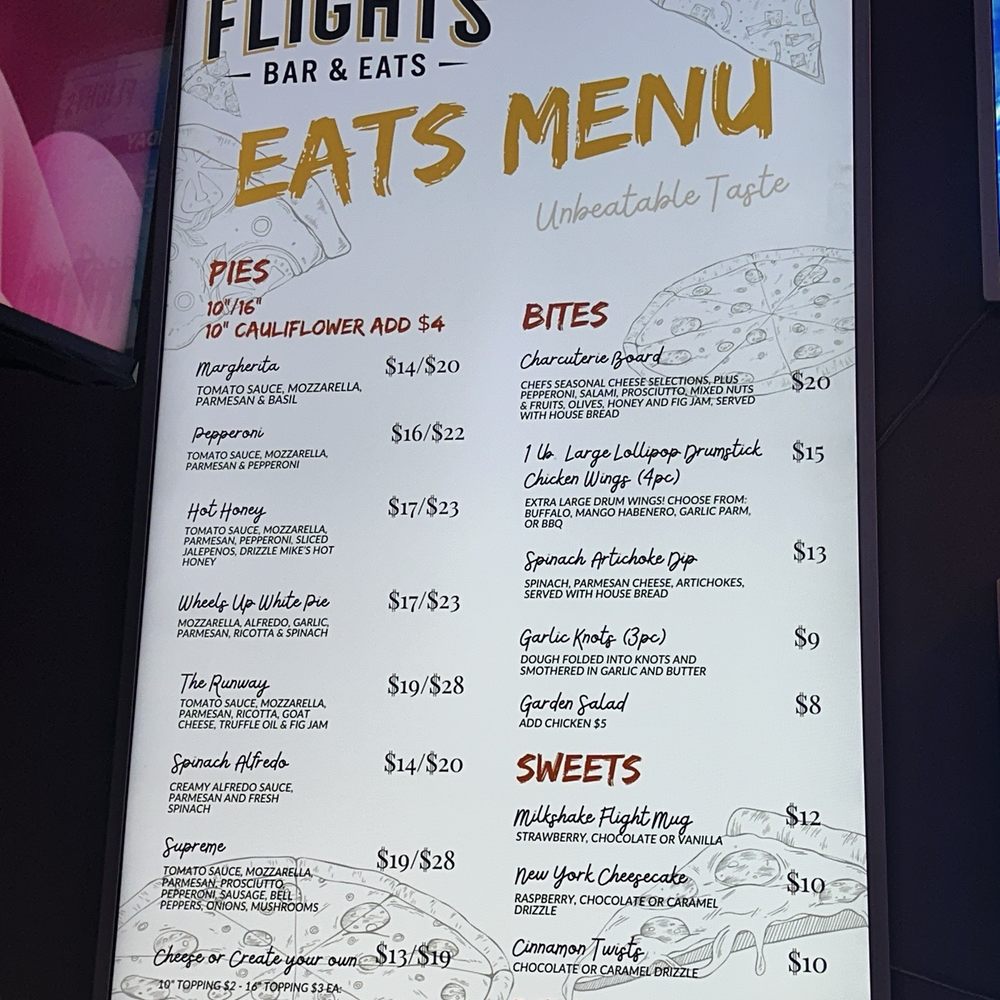 FLIGHTS
BAR & EATS
EATS MENU
Unbeatable Taste
PIES
10"/16"
10" CAULIFLOWER ADD $4
Margherita $14/$20
TOMATO SAUCE, MOZZARELLA,
PARMESAN & BASIL
Pepperoni $16/$22
TOMATO SAUCE, MOZZARELLA,
PARMESAN & PEPPERONI
Hot Honey $17/$23
TOMATO SAUCE, MOZZARELLA,
PARMESAN, PEPPERONI, SLICED
JALEPENOS, DRIZZLE MIKE'S HOT
HONEY
Wheels Up White Pie $17/$23
MOZZARELLA, ALFREDO, GARLIC,
PARMESAN, RICOTTA & SPINACH
The Runway $19/$28
TOMATO SAUCE, MOZZARELLA,
PARMESAN, RICOTTA, GOAT
CHEESE, TRUFFLE OIL & FIG JAM
Spinach Alfredo $14/$20
CREAMY ALFREDO SAUCE,
PARMESAN AND FRESH
SPINACH
Supreme $19/$28
TOMATO SAUCE, MOZZARELLA,
PARMESAN, PROSCIUTTO,
PEPPERONI, SAUSAGE, BELL
PEPPERS, ONIONS, MUSHROOMS
Cheese or Create your own $13/$19
10" TOPPING $2 - 16" TOPPING $3 EA.
BITES
Charcuterie Board $20
CHEFS SEASONAL CHEESE SELECTIONS, PLUS
PEPPERONI, SALAMI, PROSCIUTTO, MIXED NUTS
& FRUITS, OLIVES, HONEY AND FIG JAM, SERVED
WITH HOUSE BREAD
1 lb. Large Lollipop Drumstick $15
Chicken Wings (4pc)
EXTRA LARGE DRUM WINGS! CHOOSE FROM:
BUFFALO, MANGO HABENERO, GARLIC PARM,
OR BBQ
Spinach Artichoke Dip $13
SPINACH, PARMESAN CHEESE, ARTICHOKES,
SERVED WITH HOUSE BREAD
Garlic Knots (3pc) $9
DOUGH FOLDED INTO KNOTS AND
SMOTHERED IN GARLIC AND BUTTER
Garden Salad $8
ADD CHICKEN $5
SWEETS
Milkshake Flight Mug $12
STRAWBERRY, CHOCOLATE OR VANILLA
New York Cheesecake $10
RASPBERRY, CHOCOLATE OR CARAMEL
DRIZZLE
Cinnamon Twists $10
CHOCOLATE OR CARAMEL DRIZZLE